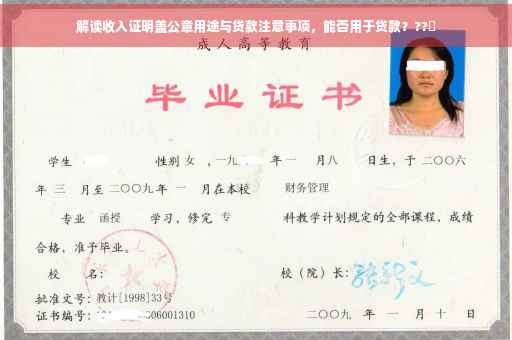 解读收入证明盖公章用途与贷款注意事项，能否用于贷款？??
成人高等教育
毕业证书
学生 性别 女 ，一九 年 一 月八 日生，于 二〇〇六
年 三 月至二〇〇九年 一 月在本校 财务管理
专业 函授 学习，修完 专 科教学计划规定的全部课程，成绩
合格，准予毕业。
校 名： 校（院）长：
批准文号：教计[1998]33号
证书编号： 606001310 二〇〇九 年 一 月 十 日